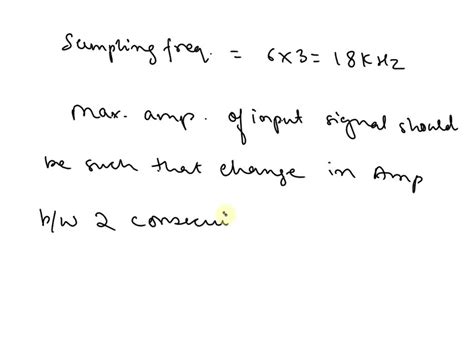 Sampling freq. = 6x3 = 18KHz
Max. amp. of input signal should
be such that change in Amp
b/w 2 consecui